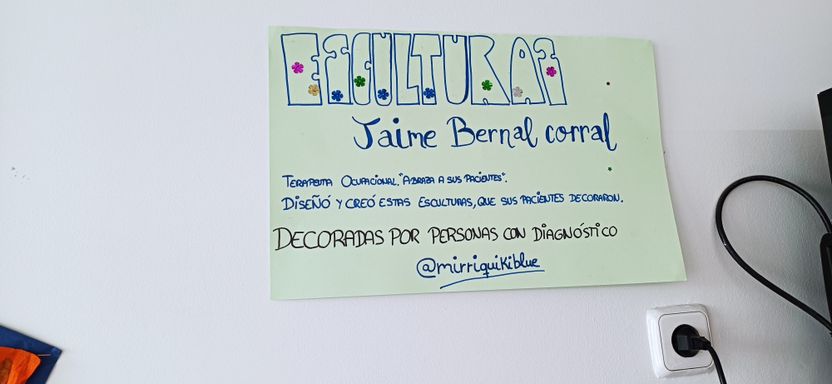 ESCULTURAS
Jaime Bernal corral
TERAPEUTA OCUPACIONAL. "ABRAZA A SUS PACIENTES".
DISEÑÓ Y CREÓ ESTAS ESCULTURAS, QUE SUS PACIENTES DECORARON.
DECORADAS POR PERSONAS CON DIAGNÓSTICO
@mirriquikiblue